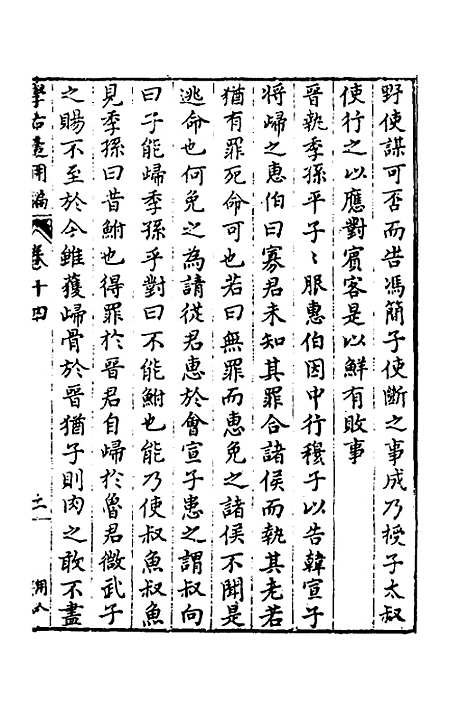 野使謀可否而告馮簡子使斷之事成乃授子太叔
使行之以應對賓客是以鮮有敗事
晉執季孫平子〻服惠伯因中行穆子以告韓宣子
將歸之惠伯曰寡君未知其罪合諸侯而執其老若
猶有罪死命可也若曰無罪而惠免之諸侯不聞是
逃命也何免之為請從君惠於會宣子患之謂叔向
曰子能歸季孫乎對曰不能鮒也能乃使叔魚叔魚
見季孫曰昔鮒也得罪於晉君自歸於魯君微武子
之賜不至於今雖獲歸骨於晉猶子則肉之敢不盡
卷十四